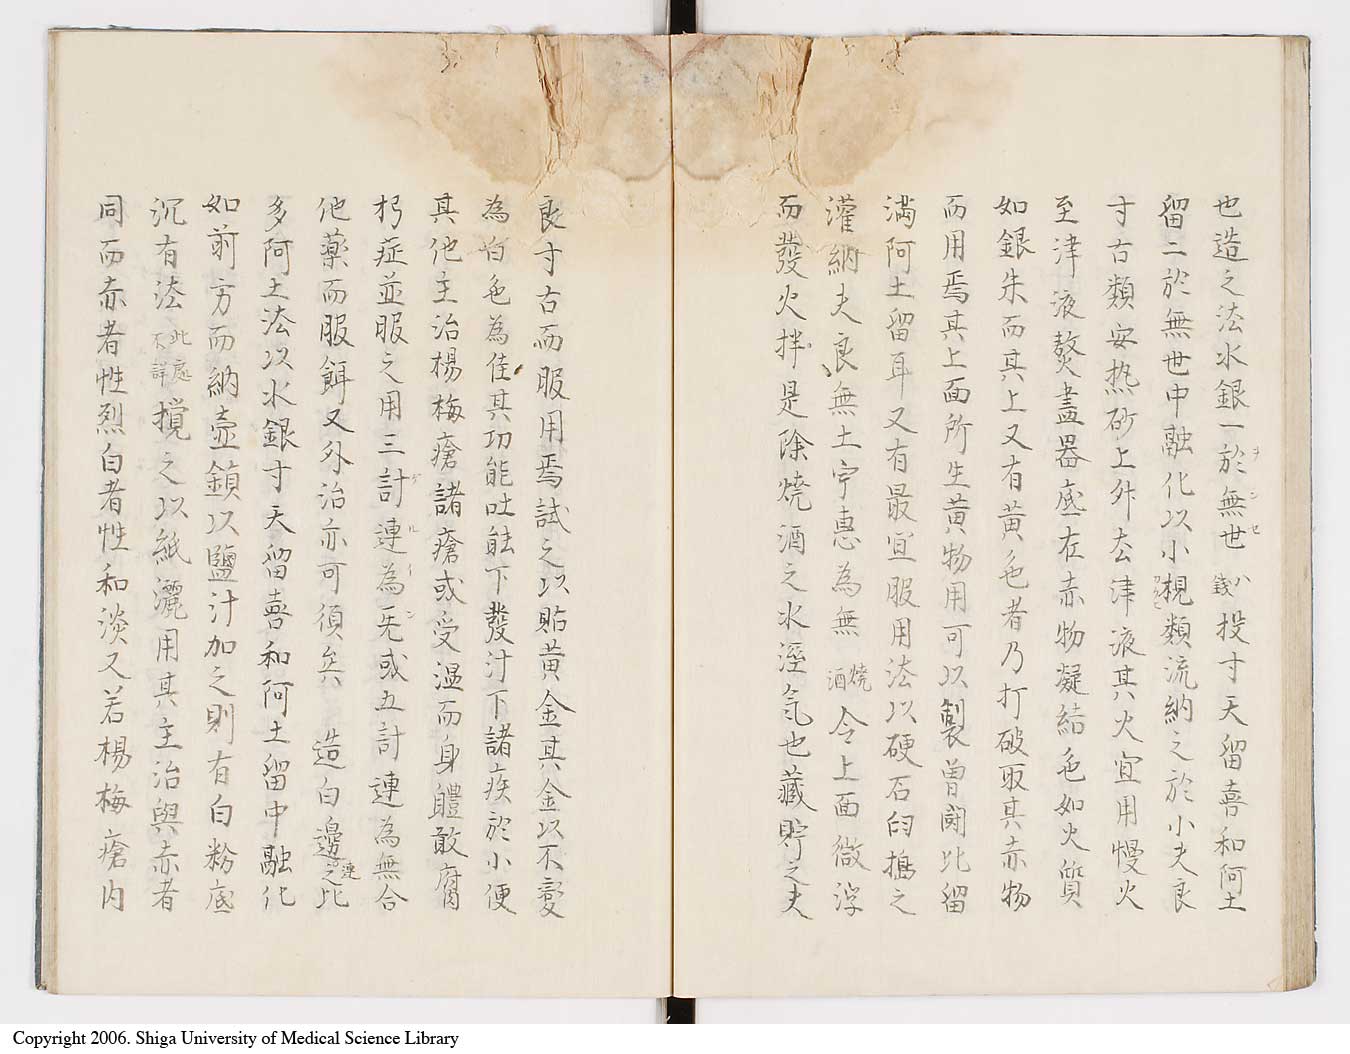 也造之法水銀一於無世八錢投寸天留喜和阿土
ヲンセ
留二於無世中融化以小規類流納之於小夫良
寸古類安热砂上外去津液其火宜用慢火
至津液熬盡器底在赤物凝結色如火質
如銀朱而其上又有黄色者乃打破取其赤物
而用焉其上面所生黄物用可以製曽閑比留
満阿土留耳又有最宜服用法以硬石臼搗之
灌納夫良無土宇惠為無燒酒令上面微浮
而發火拌是除燒酒之水溼氣也藏貯之夫
良寸古而服用焉試之以貼黄金其金以不變
為白色為佳其功能吐能下發汁下諸疾於小便
其他主治楊梅瘡諸瘡或受温而身體敢腐
朽症並服之用三計連為旡或五計連為無合
ゲルイン
他藥而服餌又外治亦可須矣 造白邊之比
多阿土法以水銀寸天留喜和阿土留中融化
如前方而納壺鎖以鹽汁加之則有白粉底
沉有法此處不詳攪之以紙灑用其主治與赤者
同而赤者性烈白者性和淡又若楊梅瘡内
Copyright 2006. Shiga University of Medical Science Library